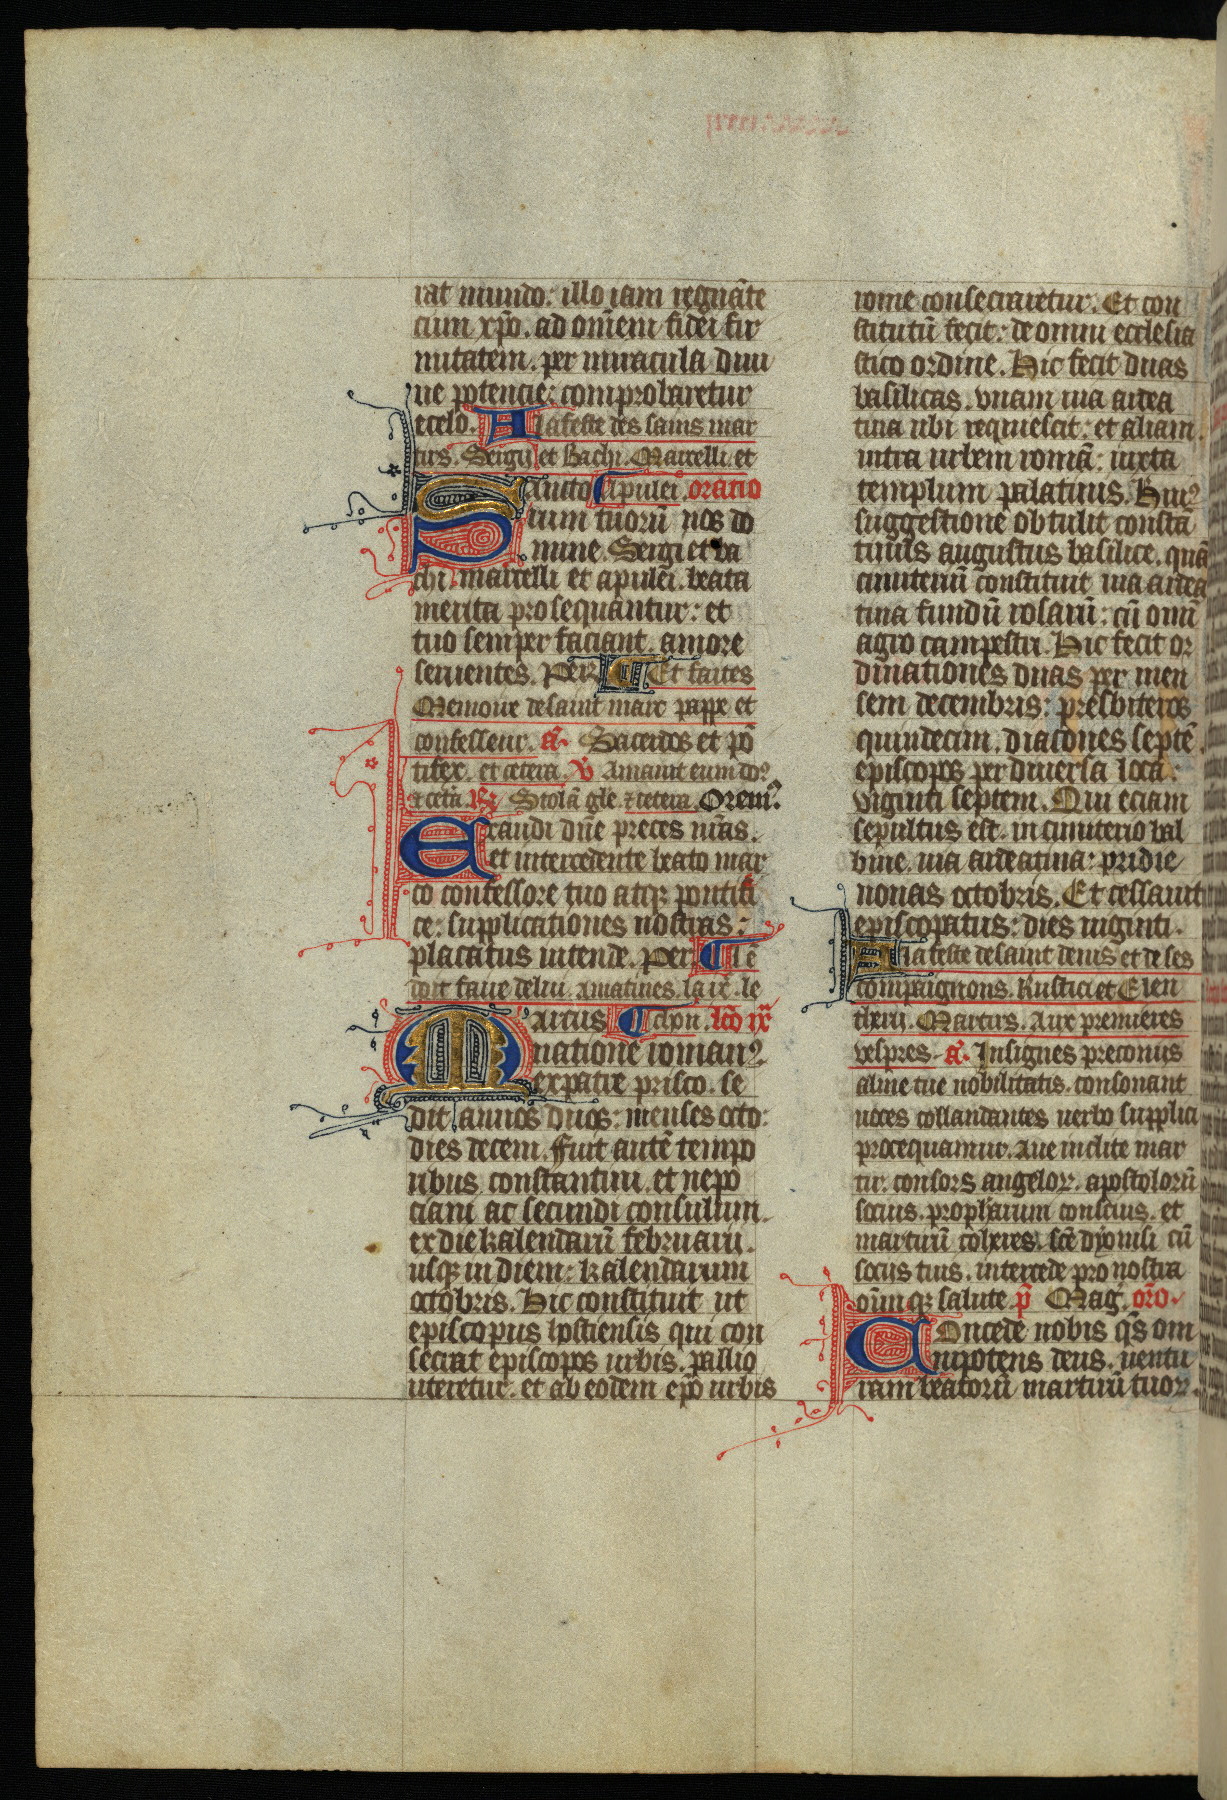 rat mundo: illo iam regnãte
cum xp̃o. ad om̃em fidei fir
mitatem. per miracula diui
ne potencie: comprobaretur
ecelo. A la feste des sains mar
tirs. Sergij et Bachi. Marcelli et
Apulei. oratio
Sancto
rum tuorũ nos do
mine. Sergi et ba
chi. marcelli et apulei. beata
merita prosequantur: et
tuo semper faciant. amore
feruentes. Per. Et faites
Memoire de saint marc pappe et
confesseur. a. Sacerdos et põ
tifex. et cetera. V Amauit eum do.
et cetã. R Stolã gle. et cetera. Orem.
Exaudi dñe preces nr̃as.
et intercedente beato mar
co confessore tuo atq pontifi
ce: supplicationes nostras:
placatus intende. Per. Le
doit faire de lui. Amatines. la ix. le
cion. lc̃o ix
Marcus
natione roman9
ex patre prisco. se
dit annos duos: menses octo:
dies decem. Fuit autẽ tempo
ribus constantini. et nepo
ciani ac secundi consulum.
ex die kalendarũ februarii.
usq in diem: kalendarum
octobris. Hic constituit ut
episcopus hostiensis qui con
secrat episcopos urbis. pallio
uteretur. et ab eodem ep̃o urbis
rome consecraretur. Et con
stitutũ fecit: de omni ecclesia
stico ordine. Hic fecit duas
basilicas. vnam uia ardea
tina ubi requiescit: et aliam.
intra urbem romã: iuxta
templum palatinis. Hui9
suggestione obtulit constã
tinus augustus basilice. quã
cimiteriũ constituit uia ardea
tina fundũ rosarũ: cũ omi
agro campestri. Hic fecit or
dinationes duas per men
sem decembris: presbiteros
quindecim. diacones septẽ.
episcopos per diuersa loca:
viginti septem. Qui eciam
sepultus est. in cimiterio bal
bine. uia ardeatina: pridie
nonas octobris. Et cessauit
episcopatus: dies uiginti.
A la feste de saint denis et de ses
compaignons. Rustici et Eleu
therii. Martirs. Aux premieres
vespres. a. Insignes preconiis
alme tue nobilitatis. consonant
uoces collaudantes uerbo supplici
procequamur. Aue inclite mar
tir. consors angelor. apostolorũ
socius. prophetarum conscius. et
martirũ coheres. scẽ dyonisi cũ
sociis tuis. intercede pro nostra
om̃iumq salute. p̃ Mag. or̃o.
Concede nobis qs om
nipotens deus. uentu
ram beatorũ martirũ tuor.